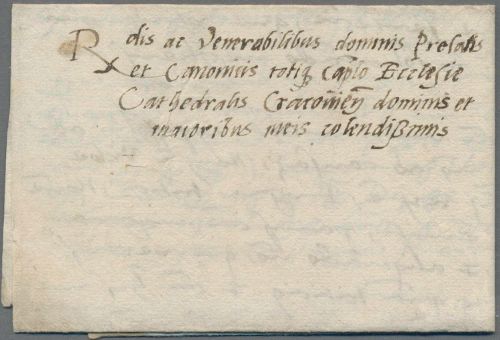 Rdis ac Venerabilibus dominis Prelatis
et Canonicis totiq Caplo Ecclesie
Cathedralis Cracovien dominis et
maioribus meis colendißimis